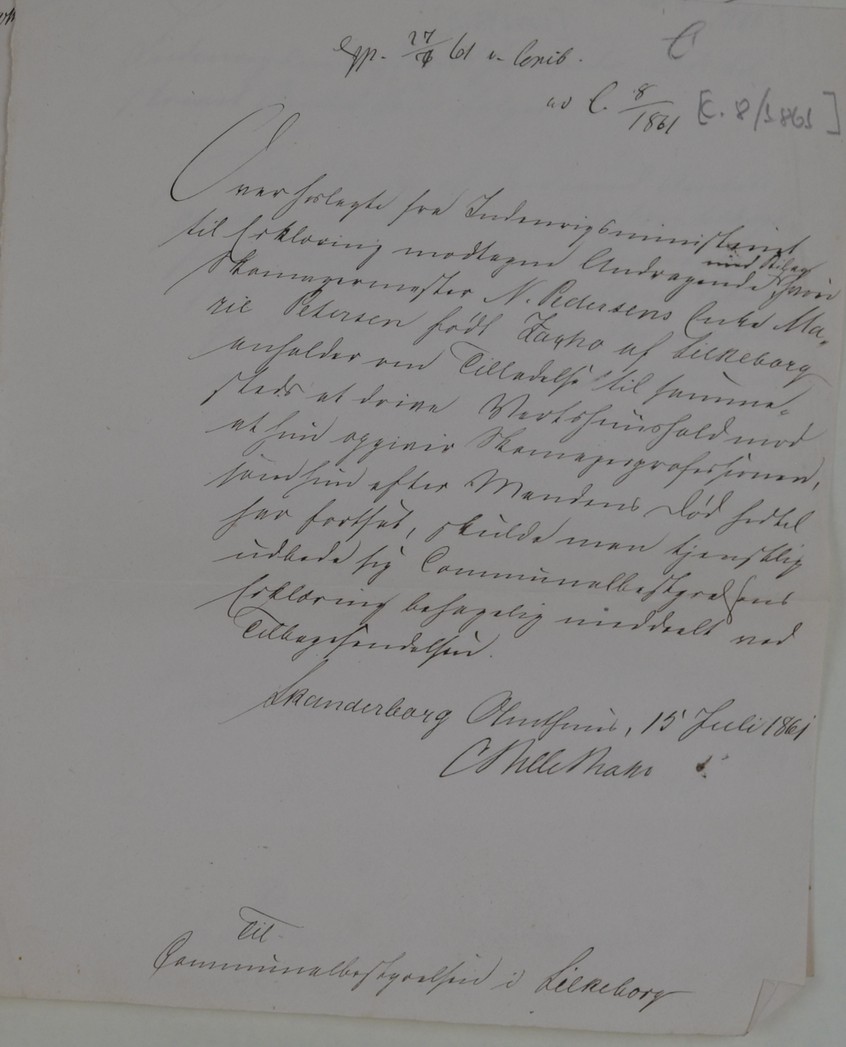 Exp. 27/7 61 v. Copib.
ad C. 8/1861 [C. 8/1861]
Overforlagte fra Indenrigsministeriet
til Erklæring modtagne Andragende med Bilag, hvori
Skomagermester N. Pedersens Enke Ma-
rie Petersen født Zagho af Silkeborg
anholder om Tilladelse til samme-
steds at drive Vertshuushold mod
at hun opgiver Skomagerprofessionen,
som hun efter Mandens Død hidtil
har fortsat, skulde man tjenstlig
udbede sig Communalbestyrelsens
Erklæring behagelig meddeelt ved
Tilbagesendelsen.
Skanderborg Amthuus, 15 Juli 1861
Til
Communalbestyrelsen i Silkeborg